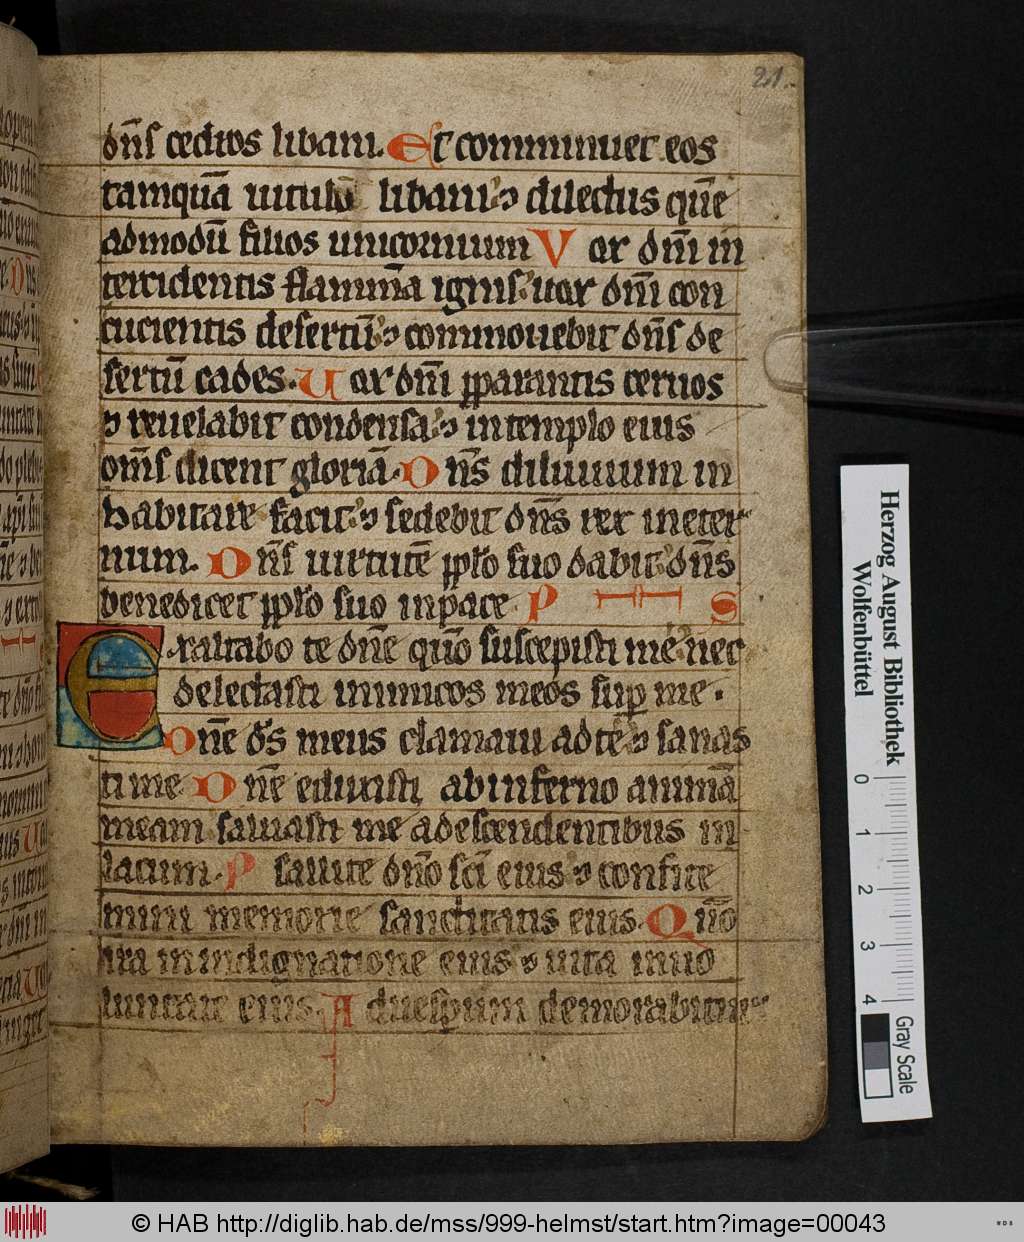 21.
dn̄s cedros libani. Et comminuet eos
tamquā uitulū libani ⁊ dilectus quē
admodū filios unicornium Vox dn̄i in
tercidentis flammā ignis uox dn̄i con
cucientis desertū ⁊ commouebit dn̄s de
sertū cades. Uox dn̄i p̄parantis ceruos
⁊ reuelabit condensa ⁊ in templo eius
om̄s dicent gloriā. Dn̄s diluuium in
habitare facit ⁊ sedebit dn̄s rex in eter
num. Dn̄s uirtutē pp̄lo suo dabit dn̄s
benedicet pp̄lo suo in pace P S
Exaltabo te dn̄e quō suscepisti me nec
delectasti inimicos meos sup me.
Dn̄e ds̄ meus clamaui ad te ⁊ sanas
ti me Dn̄e eduxisti ab inferno animā
meam saluasti me a descendentibus in
lacum. Psallite dn̄o sc̄i eius ⁊ confite
mini memorie sanctitatis eius. Qn̄o
ira in indignatione eius ⁊ uita in uo
luntate eius. Ad uesperum demorabitur
Herzog August Bibliothek
Wolfenbüttel
0 1 2 3 4
Gray Scale
© HAB http://diglib.hab.de/mss/999-helmst/start.htm?image=00043